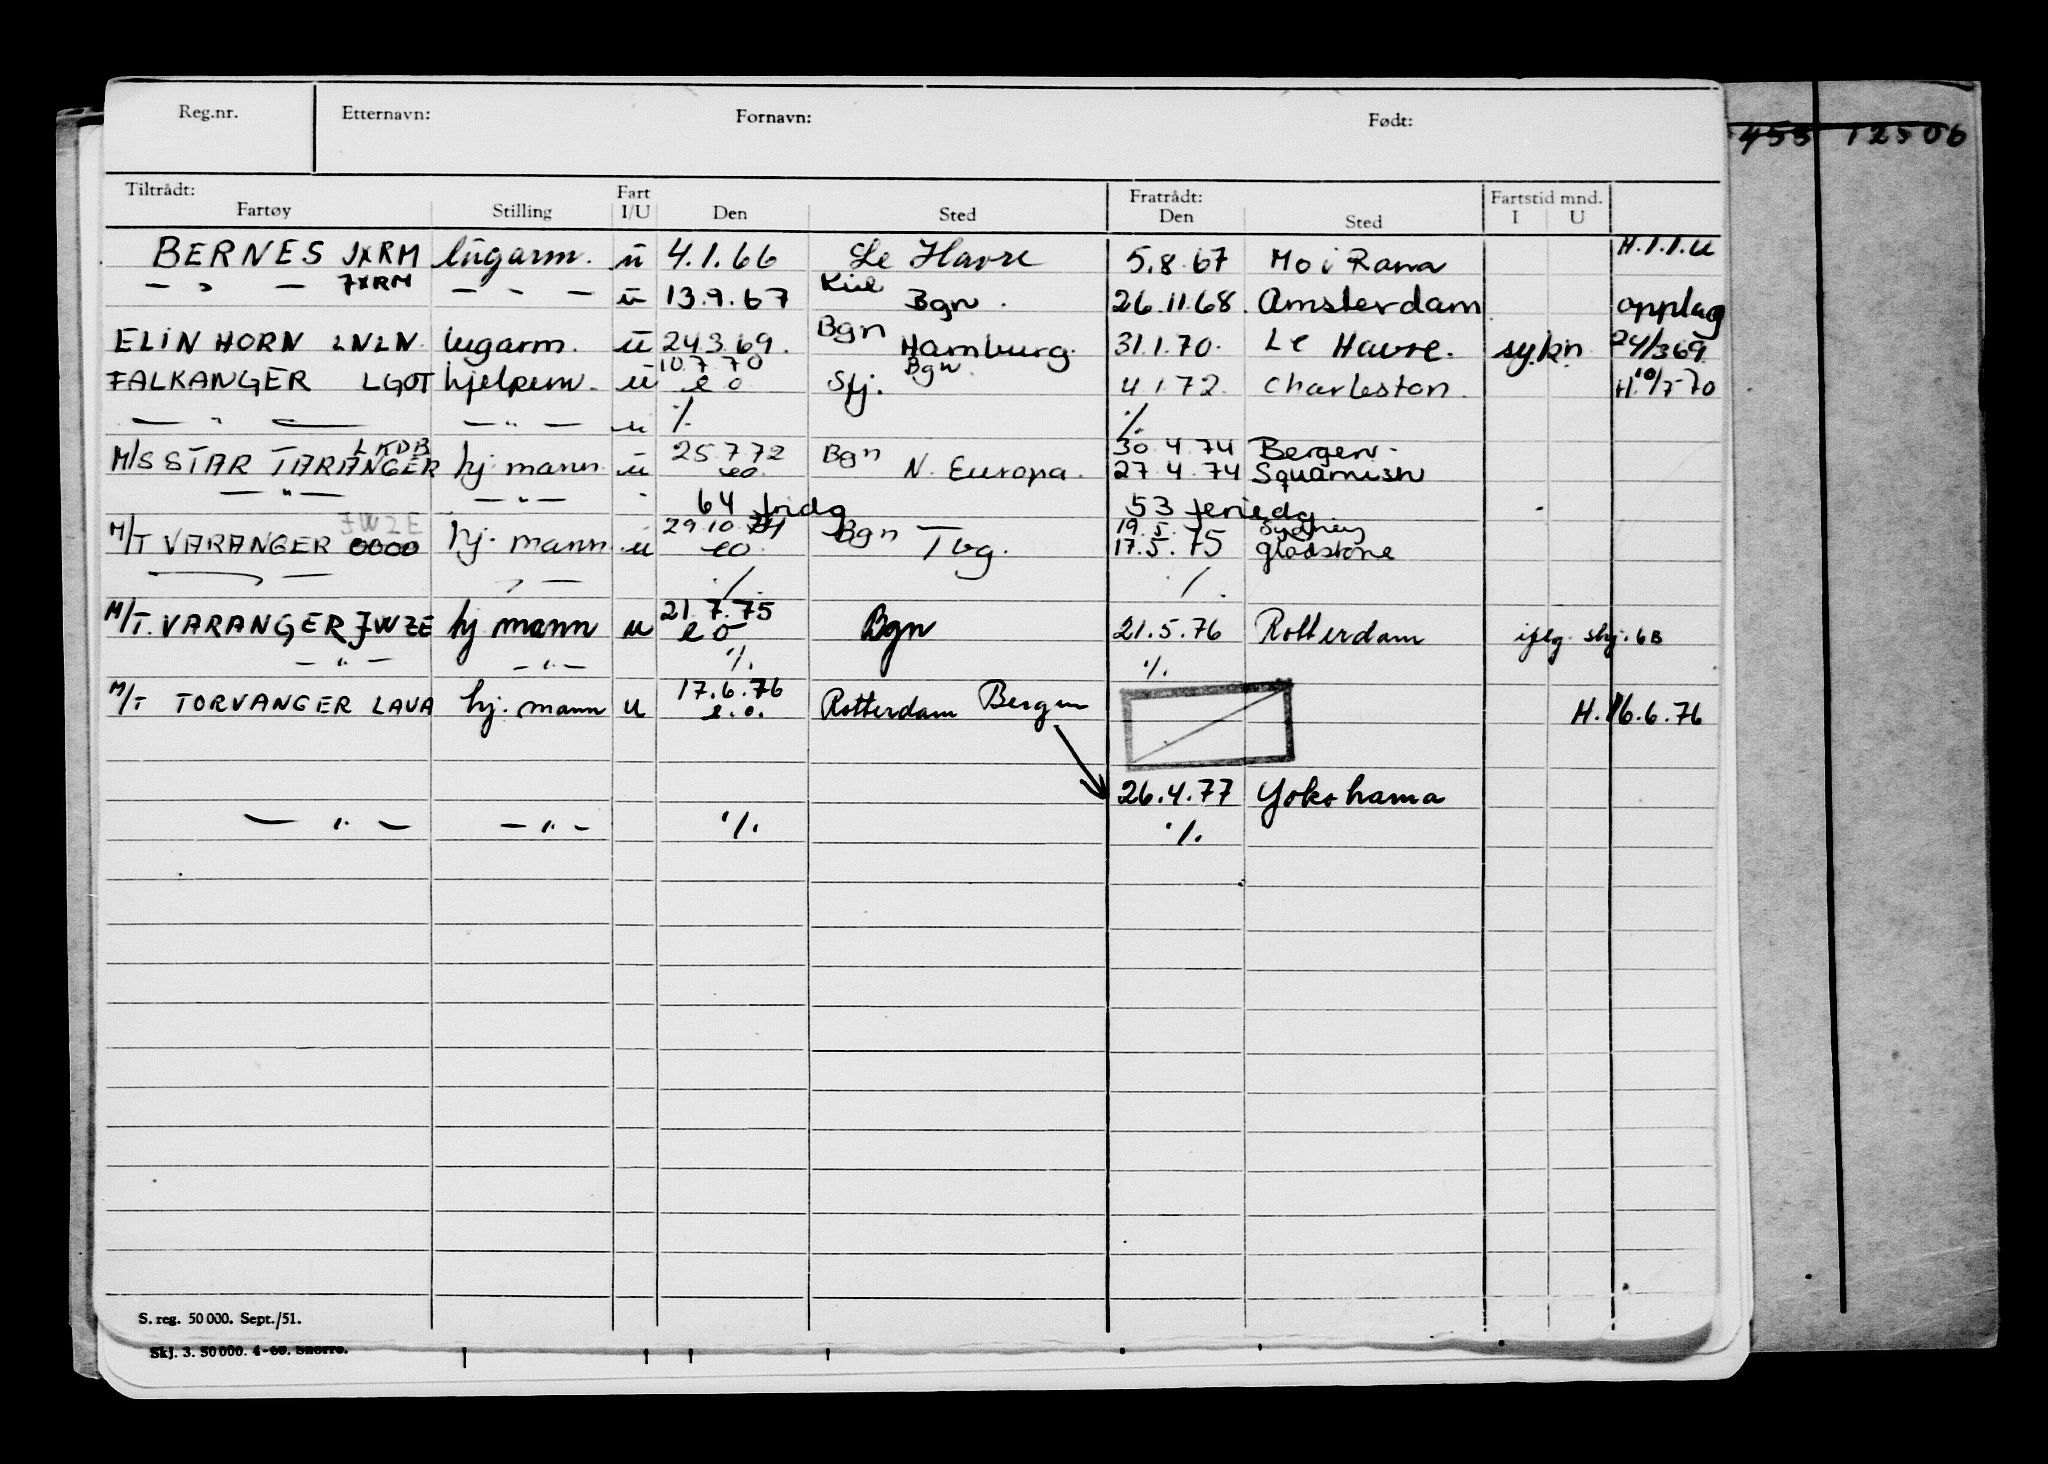 Reg.nr. Etternavn: Fornavn: Født:
455 12506
Tiltrådt: Fart Fratrådt: Fartstid mnd.
Fartøy Stilling I/U Den Sted Den Sted I U
BERNES JXRM lugarm. u 4.1.66 Le Havre 5.8.67 Mo i Rana
— " — JXRM — - — u 13.9.67 Kiel Bgn. 26.11.68. Amsterdam opplag
ELIN HORN LNLN. lugarm. u 24.3.69. Bgn Hamburg. 31.1.70. Le Havre. sykn 24/3 69
FALKANGER LGOT hjelpem. u 10.7.70 eo Sfj. Bgn. 4.1.72. Charleston. H. 10/7-70
— " — — " — u ./. ./.
M/S STAR TARANGER LKDB hj mann u 25.7.72 eo Bgn N. Europa. 30.4.74 Bergen.
27.4.74 Squamish
— " — — " — 64 fridg 53 feriedg
M/T VARANGER JWZE hj. mann u 29.10.74 eo Bgn Tbg. 19.5. Sydney
17.5.75 Gladstone
./. ./.
M/T. VARANGER JWZE hj mann u 21.7.75 eo Bgn 21.5.76 Rotterdam iflg. skj. 6B
— " — — " — ./. ./.
M/T TORVANGER LAVA hj. mann u 17.6.76 e.o. Rotterdam Bergen H. 16.6.76
26.4.77 Yokohama
— " — — " — ./. ./.
S. reg. 50 000. Sept./51.
Skj. 3. 50 000. 4-60. Snorre.